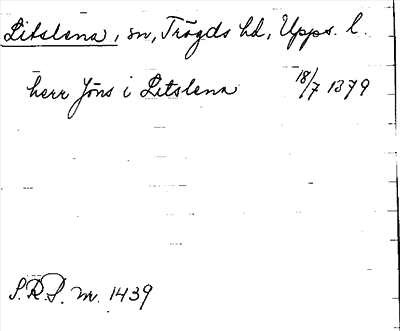 Litslena, sn, Trögds hd, Upps. l.
herr Jöns i Litslena 18/7 1379
S.R.P. nr. 1439